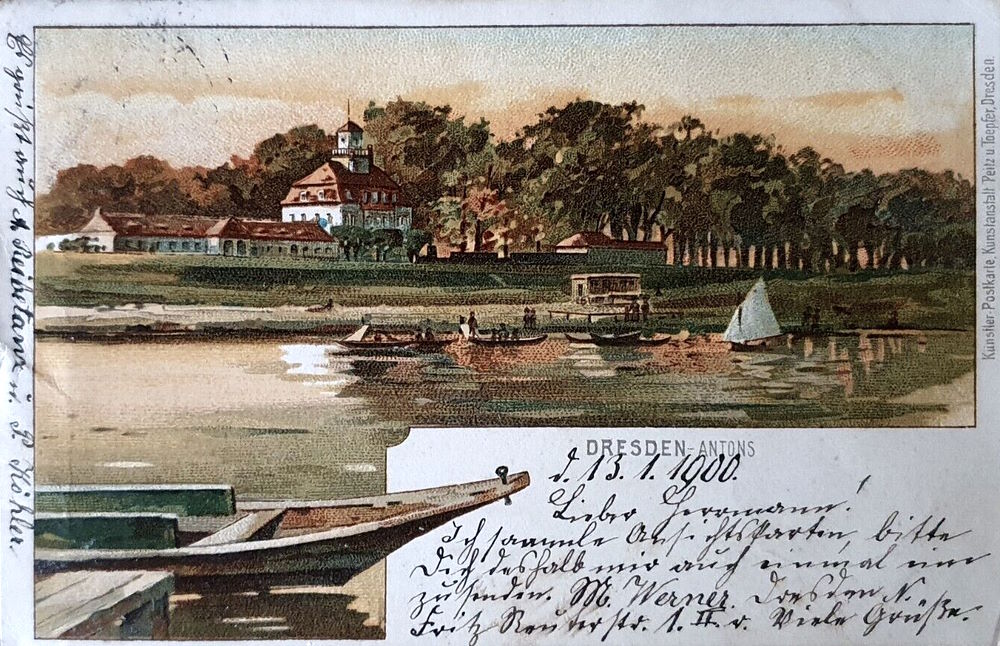 DRESDEN-ANTONS
d. 13. 1. 1900.
Lieber Herrmann!
Ich sammle Ansichtskarten, bitte
Dich deshalb mir auch einmal eine
zu senden. M. Werner. Dresden N.
Fritz Reuterstr. 1. II. r. Viele Grüße.
Künstler-Postkarte, Kunstanstalt Peitz u. Toepfer, Dresden.
Es grüßt u. P. Köhler.